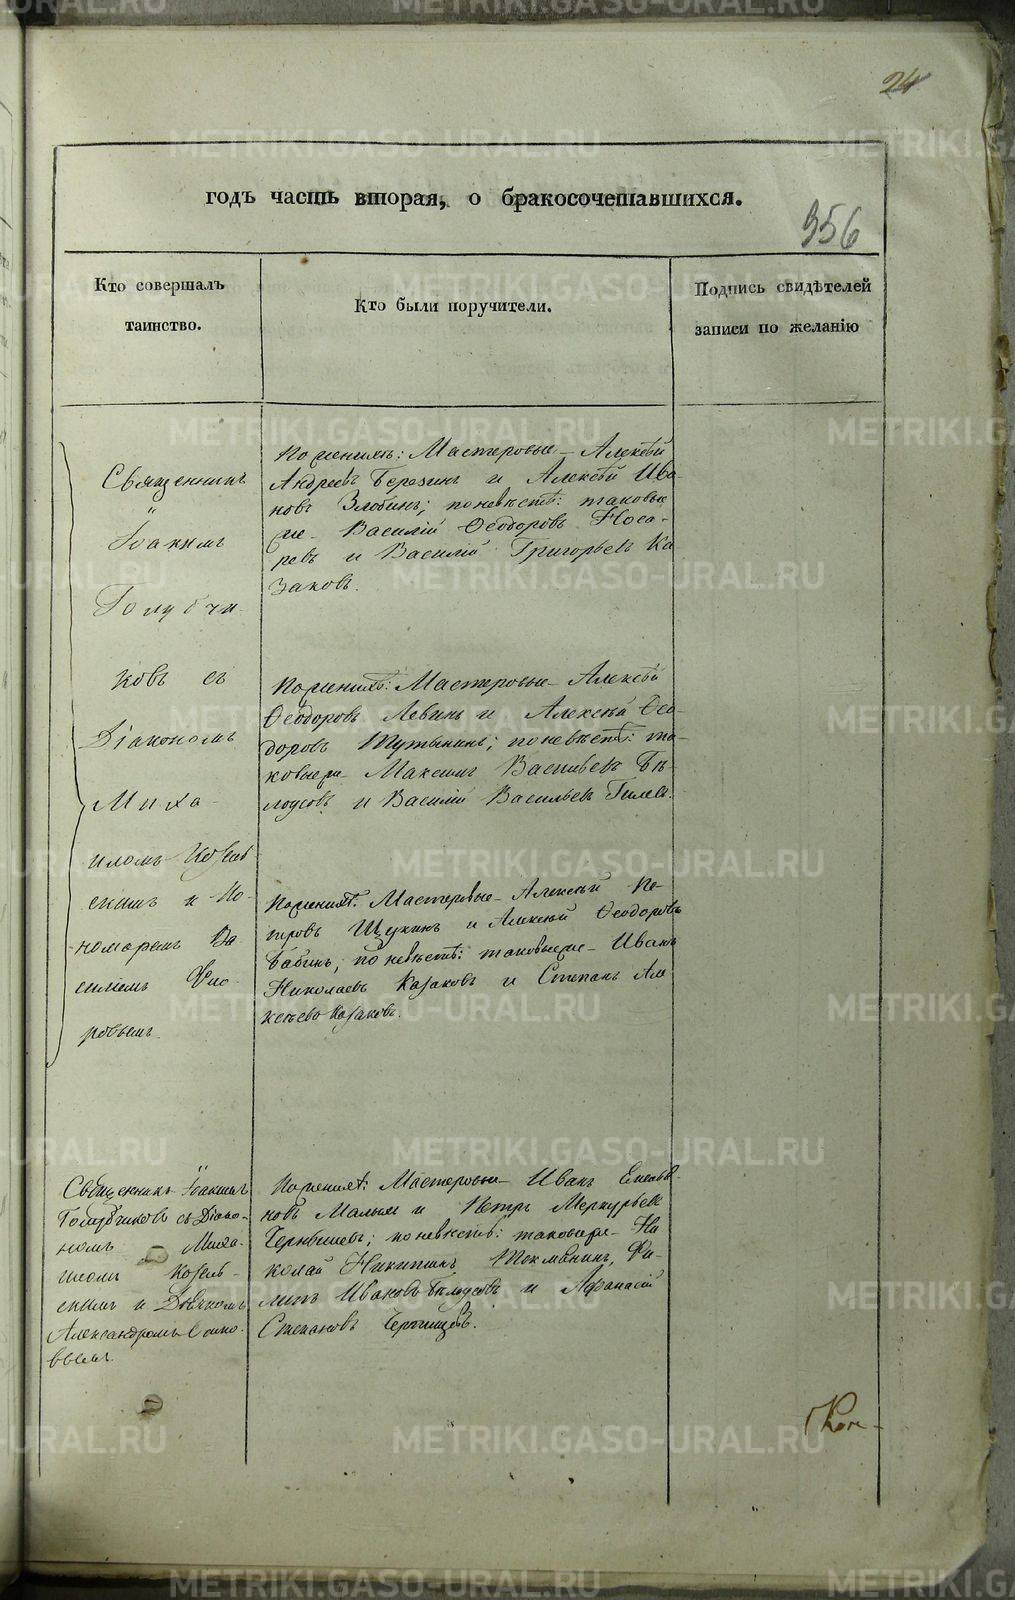 24
годъ часть вторая, о бракосочетавшихся.
956
Кто совершалъ
таинство.
Кто были поручители.
Подпись свидѣтелей
записи по желанію
Священникъ
Іоакимъ
Голубчи-
ковъ съ
Діакономъ
Миха-
иломъ Козель
скимъ и По-
номаремъ Ва
силіемъ Фло-
ровымъ.
По женихѣ: Мастеровые – Алексѣй
Андреевъ Березинъ и Алексѣй Ива
новъ Злобинъ; по невѣстѣ: таковые
же – Василій Ѳеодоровъ Носа-
ревъ и Василій Григорьевъ Ка
заковъ.
По женихѣ: Мастеровые – Алексѣй
Ѳеодоровъ Левинъ и Алексѣй Ѳео-
доровъ Тутынинъ; по невѣстѣ: та-
ковые же – Максимъ Васильевъ Бѣ-
лоусовъ и Василій Васильевъ
По женихѣ: Мастеровые – Алексѣй Пе-
тровъ Щукинъ и Алексѣй Ѳеодоровъ
Бабинъ; по невѣстѣ: таковые же – Иванъ
Николаевъ Казаковъ и Степанъ Але
ксѣевъ Казаковъ.
Священникъ Іоакимъ
Голубчиковъ съ Діако-
номъ Миха-
иломъ Козель-
скимъ и Дьячкомъ
Александромъ
По женихѣ: Мастеровые – Иванъ Емелья
новъ Малыхъ и Петръ Меркурьевъ
Чернышевъ; по невѣстѣ: таковые же – Ни
колай Никитинъ Токманинъ, Фи-
липъ Ивановъ Бѣлоусовъ и Афанасій
Степановъ
METRIKI.GASO-URAL.RU